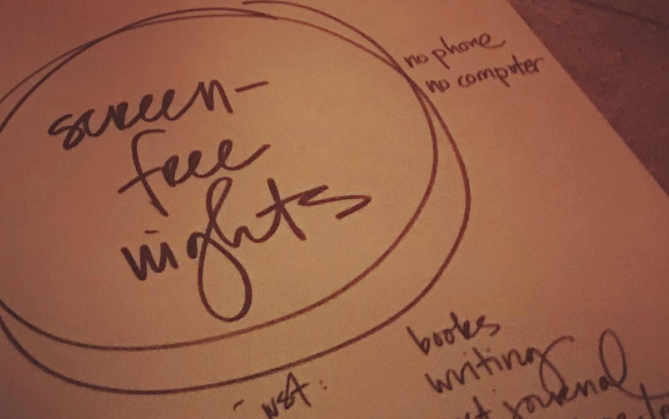 screen-
free
nights
no phone
no computer
books
writing
journal